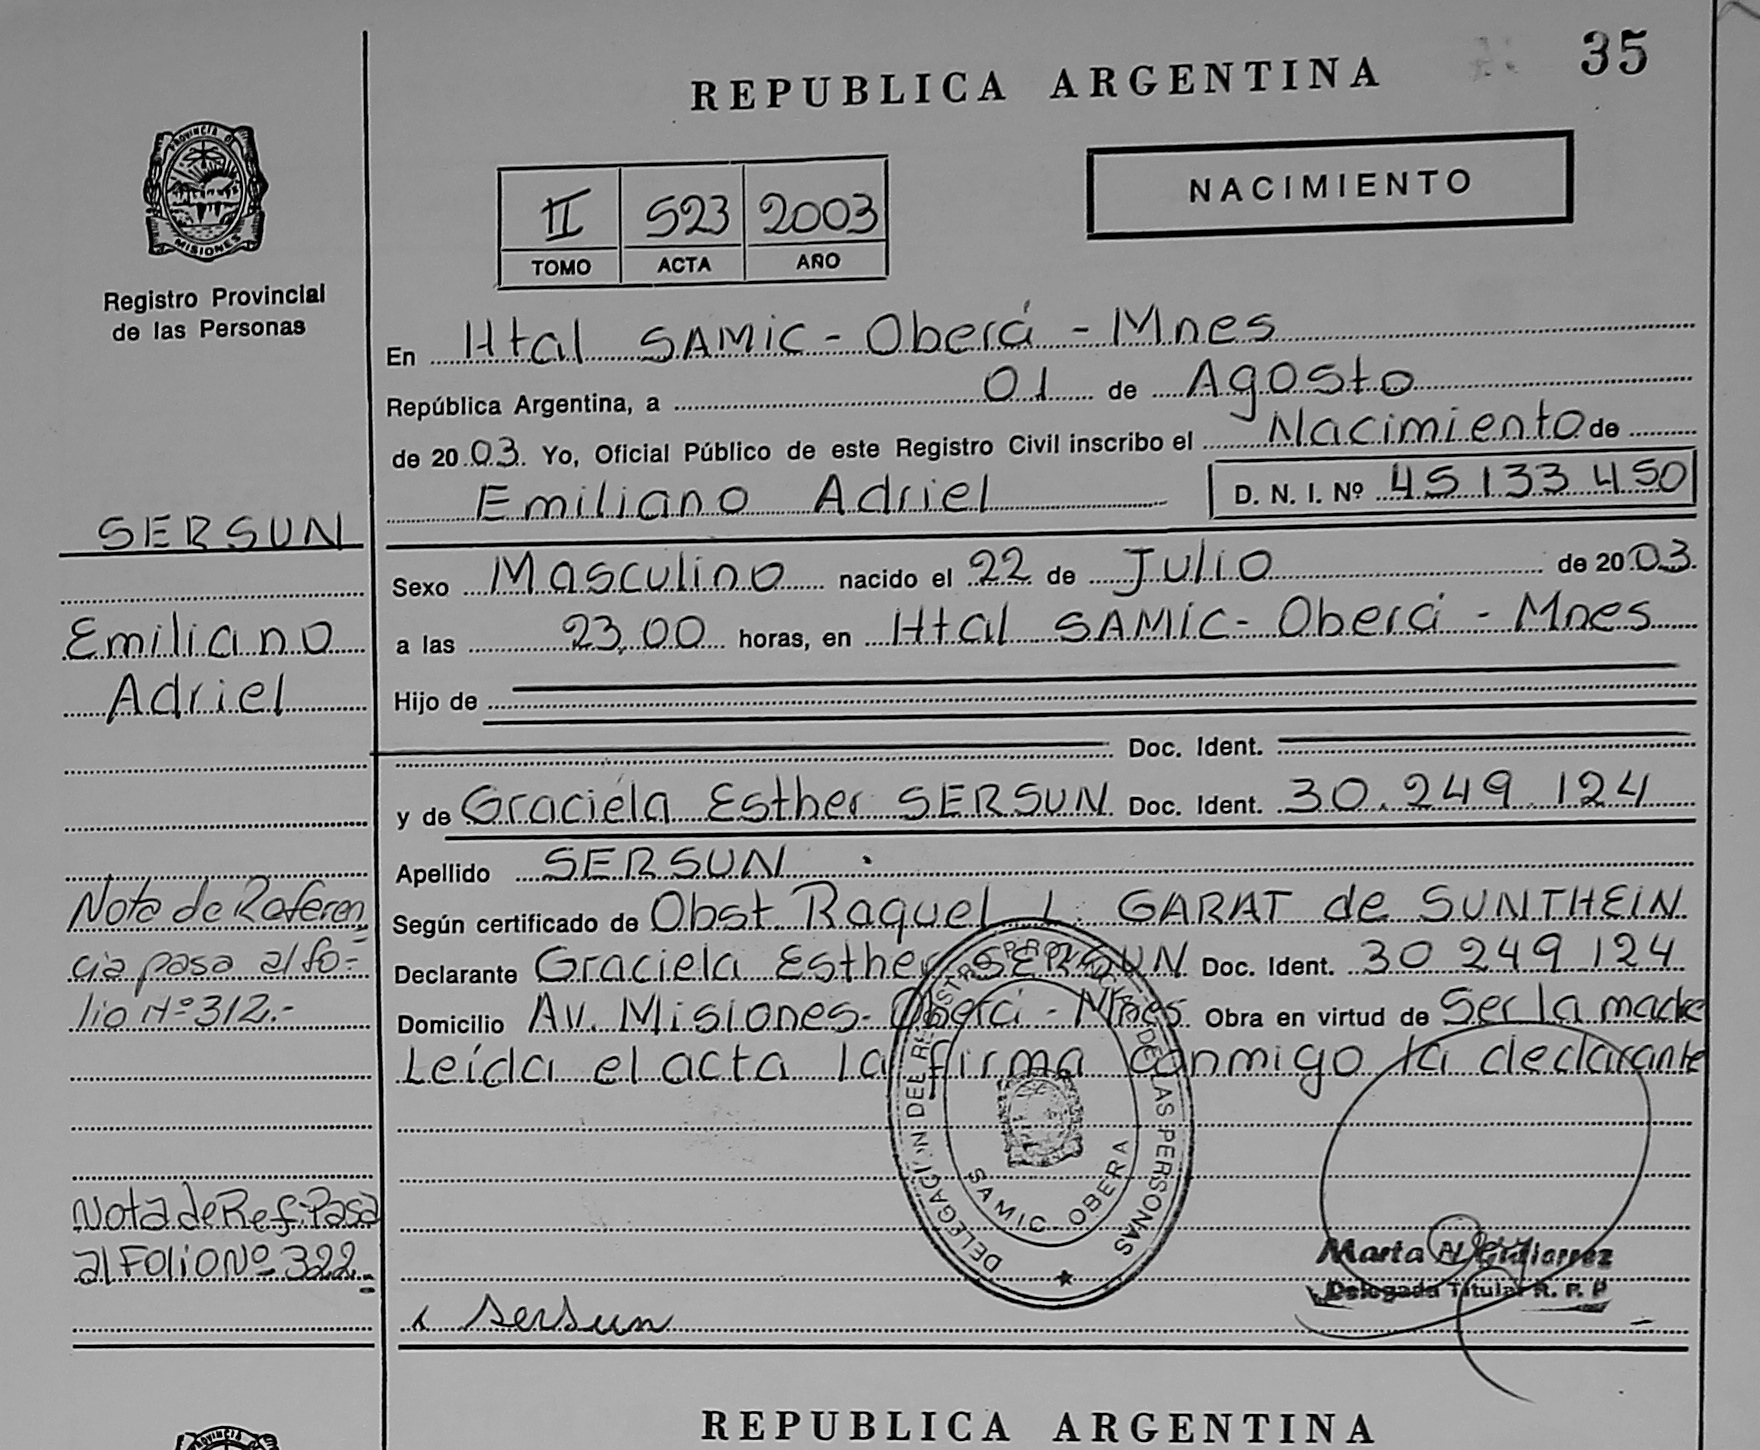 35
REPUBLICA ARGENTINA
PROVINCIA DE
MISIONES
Registro Provincial
de las Personas
NACIMIENTO
II 523 2003
TOMO ACTA AÑO
En Htal SAMIC - Oberá - Mnes
República Argentina, a 01 de Agosto
de 2003. Yo, Oficial Público de este Registro Civil inscribo el Nacimiento de
Emiliano Adriel D. N. I. Nº 45 133 450
SERSUN
Emiliano
Adriel
Sexo Masculino nacido el 22 de Julio de 2003.
a las 23,00 horas, en Htal SAMIC - Oberá - Mnes
Hijo de
Doc. Ident.
y de Graciela Esther SERSUN Doc. Ident. 30.249 124
Apellido SERSUN
Según certificado de Obst Raquel L. GARAT de SUNTHEIN
Declarante Graciela Esther SERSUN Doc. Ident. 30 249 124
Domicilio Av. Misiones - Oberá - Mnes Obra en virtud de Ser la madre
Leída el acta la firma conmigo la declarante
Nota de Referen
cia pasa al fo=
lio Nº 312.-
Nota de Ref. Pasa
al Folio Nº 322.-
DELEGACION DEL REGISTRO PROVINCIAL DE LAS PERSONAS
SAMIC - OBERA
x Sersun
Marta Gutierrez
Delegada Titular R. P. P
REPUBLICA ARGENTINA
PROVINCIA